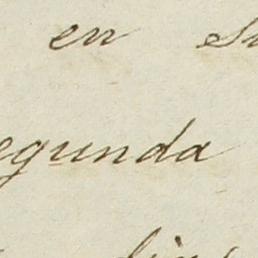 en su
segunda